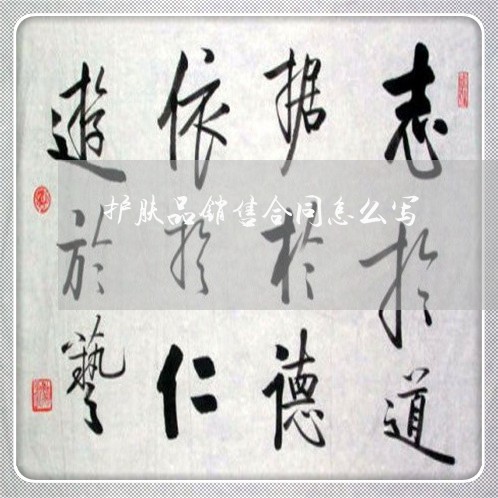 志於道
据於德
依於仁
遊於藝
护肤品销售合同怎么写